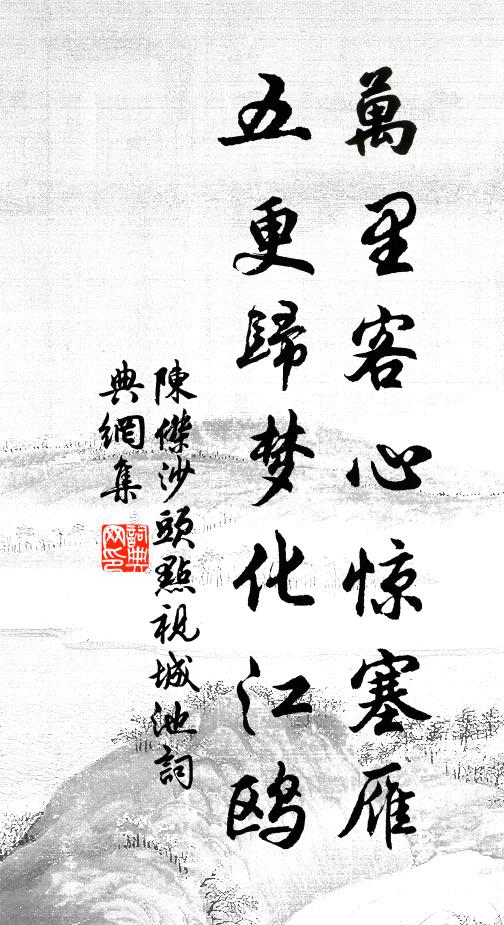 萬里客心惊塞雁
五更歸梦化江鸥
陳傑沙頭點視城池詞
典網集
詞典
网印